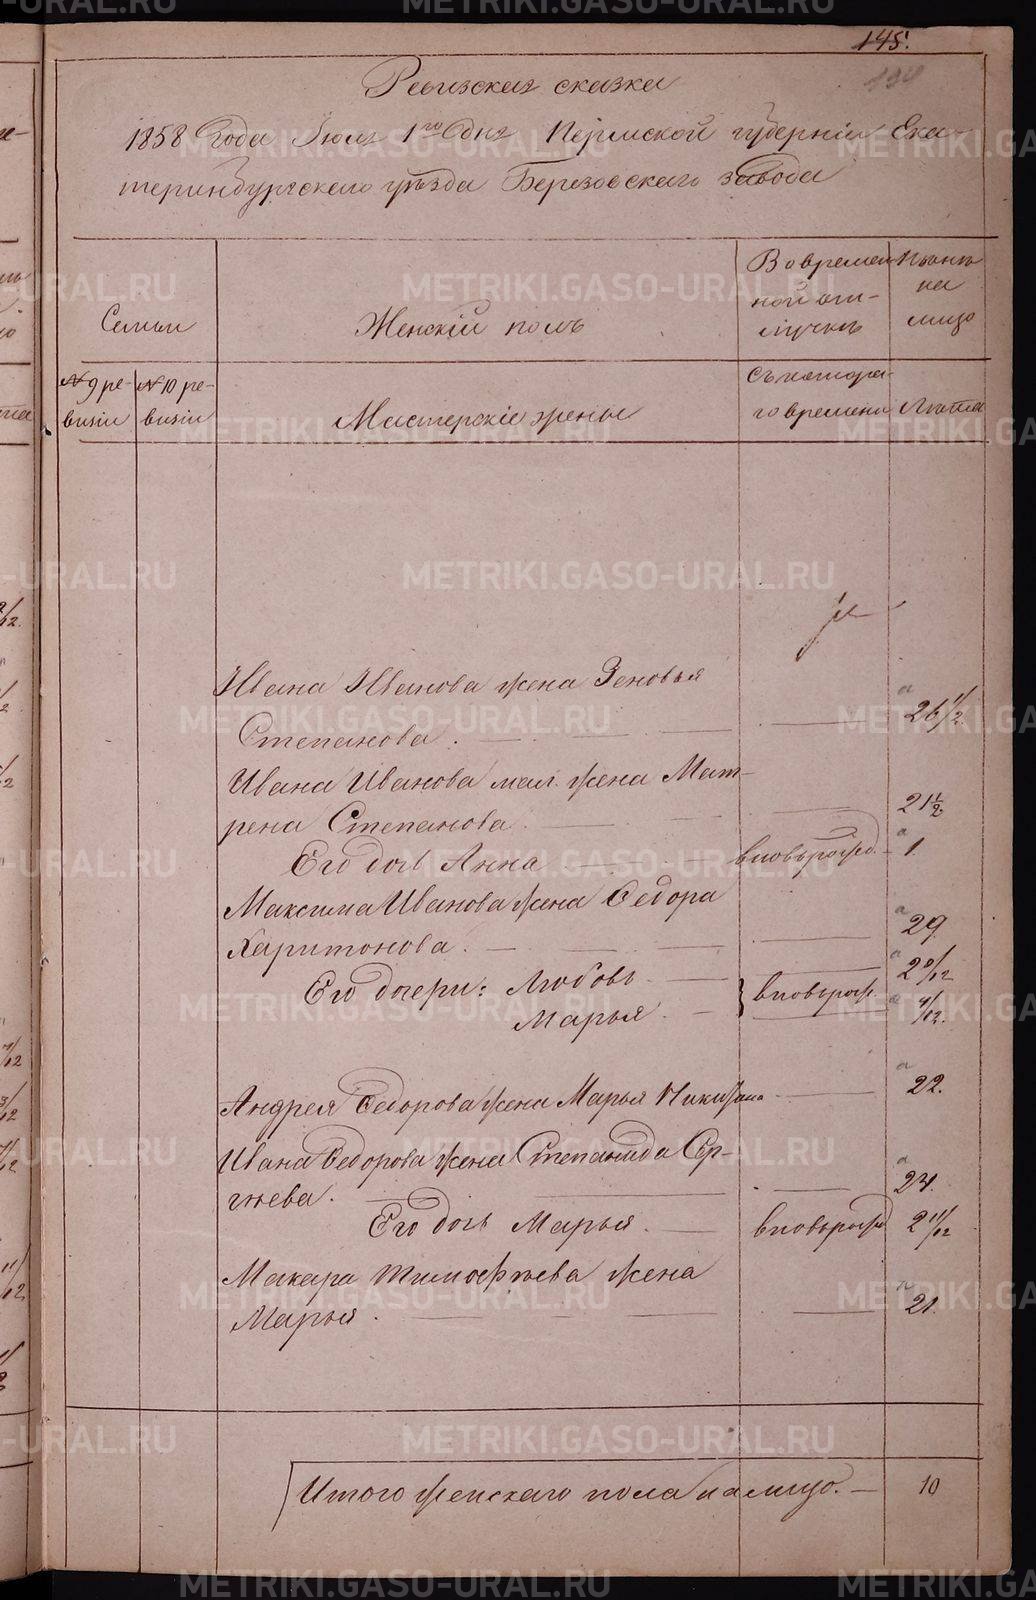 145.
Ревизская сказка
1858 года Июля 1го дня Пермской губерніи Ека-
теринбургскаго уѣзда Березовскаго завода
Семьи
Женскій полъ
Во времен-
ной от-
лучкѣ
Нынѣ
на
лицо
№ 9 ре-
визіи
№ 10 ре-
визіи
Мастерскіе жены
Съ котора-
го времени
Лѣта
Ивана Иванова жена Зеновья
Степанова. 26 11/12
Ивана Иванова мал. жена Мат-
рена Степанова 21 1/2
Его дочь Анна вновьрожд. 1.
Максима Иванова жена Федора
Харитонова. 29.
Его дочери: Любовь вновьрож.
Марья. 4/12.
Андрея Федорова жена Марья 22.
Ивана Федорова жена Степанида Сер-
гѣева.
Его дочь Марья. вновьрожд 2 11/12
Макара Тимофѣева жена
Марья. 21.
Итого женскаго пола на лицо. — 10
METRIKI.GASO-URAL.RU